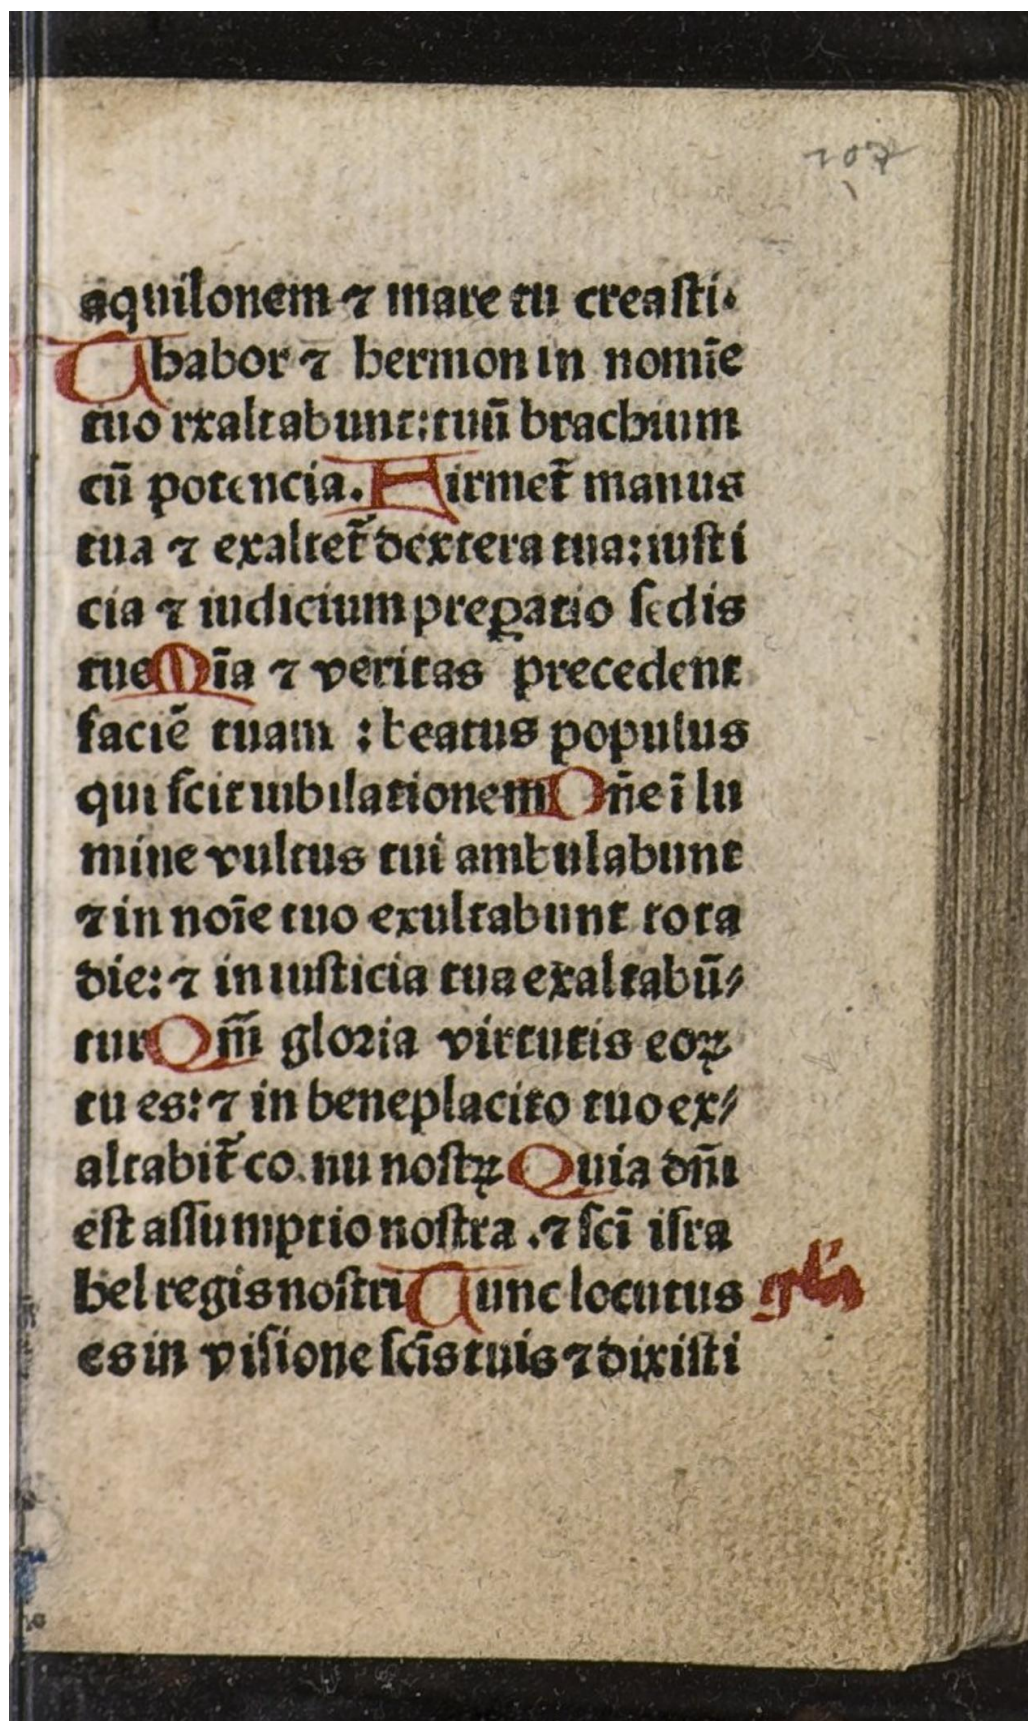 107
aquilonem ⁊ mare tu creasti.
Thabor ⁊ hermon in nomīe
tuo rxaltabunt: tuū brachium
cū potencia. Firmet᷑ manus
tua ⁊ exaltet᷑ dextera tua: iusti
cia ⁊ iudicium prepꝑatio sedis
tue Mīa ⁊ veritas precedent
faciē tuam : beatus populus
qui scit iubilationem Dn̄e ī lu
mine vultus tui ambulabunt
⁊ in noīe tuo exultabunt tota
die: ⁊ in iusticia tua exaltabū⸗
tur Qm̄ gloꝛia virtutis eoꝝ
tu es: ⁊ in beneplacito tuo ex⸗
altabit᷑ co. nu nostꝝ Quia dn̄i
est assumptio nostra . ⁊ scī isra
hel regis nostri Tunc locutus gl'a
es in visione scīs tuis ⁊ dixisti